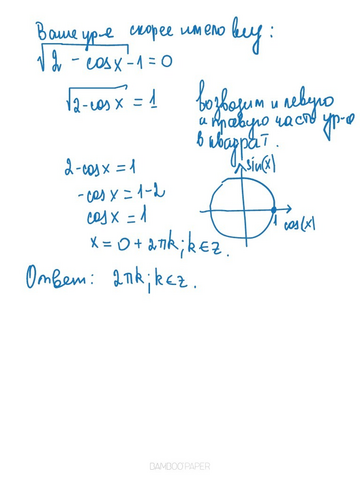 Ваше ур-е скорее имело вид:
√2 - cosx - 1 = 0
√2-cosx = 1
возводим и левую
и правую часть ур-я
в квадрат.
sin(x)
2-cosx = 1
-cosx = 1-2
cosx = 1
1
cos(x)
x = 0 + 2πk; k∈z.
Ответ: 2πk; k∈z.
BAMBOO PAPER